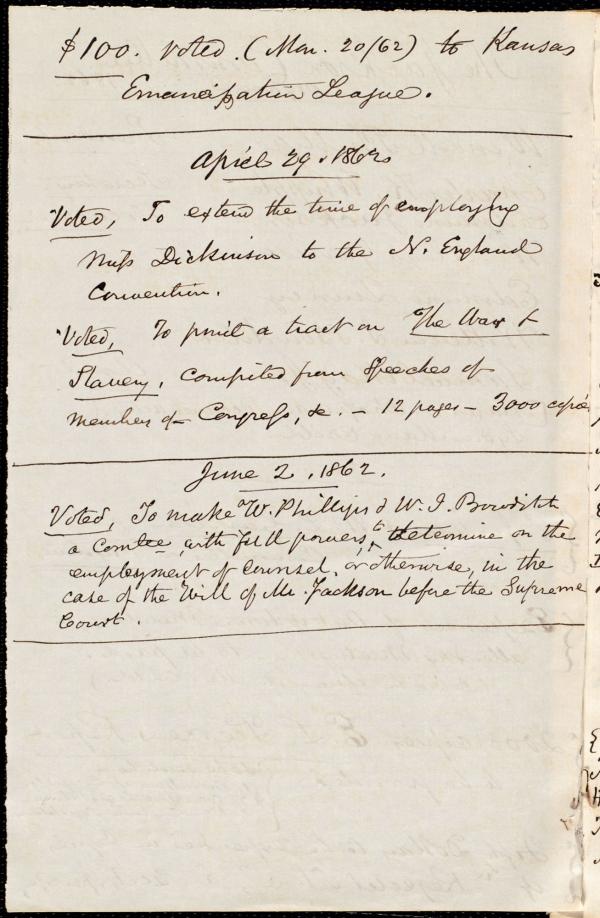 $100. voted. (Mar. 20/62) to Kansas
Emancipation League.
April 29. 1862
Voted, To extend the time of employing
Miss Dickinson to the N. England
Convention.
Voted, To print a tract on The War &
Slavery, compiled from Speeches of
members of Congress, &c. - 12 pages - 3000 copies
June 2, 1862.
Voted, To make W. Phillips & W. I. Bowditch
a Comtee with full powers, to determine on the
employment of counsel, or otherwise, in the
case of the Will of Mr. Jackson before the Supreme
Court.